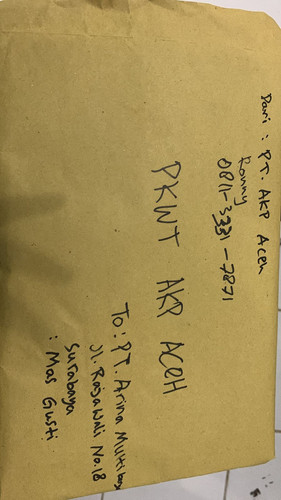 Dari : PT. AKP Aceh
Ronny
0811-3331-7871
PKWT AKP ACEH
To : PT. Arina Multikarya
Jl. Rajawali No.18
Surabaya
: Mas Gusti